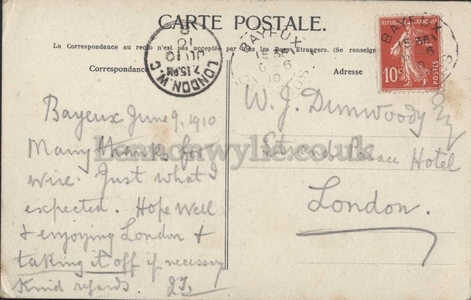 CARTE POSTALE.
La Correspondance au recto n'est pas acceptée par tous les Pays Etrangers. (Se renseigner
Correspondance
Adresse
LONDON. W.C
7.15 PM
JU 10
10
BAYEUX
BAYEUX
10c
POSTES
Bayeux June 9. 1910
Many thanks for
wire. Just what I
expected. Hope well
& enjoying London &
taking it off if necessary
Kind regards.
W. J. Dunwoody
Hotel
London.